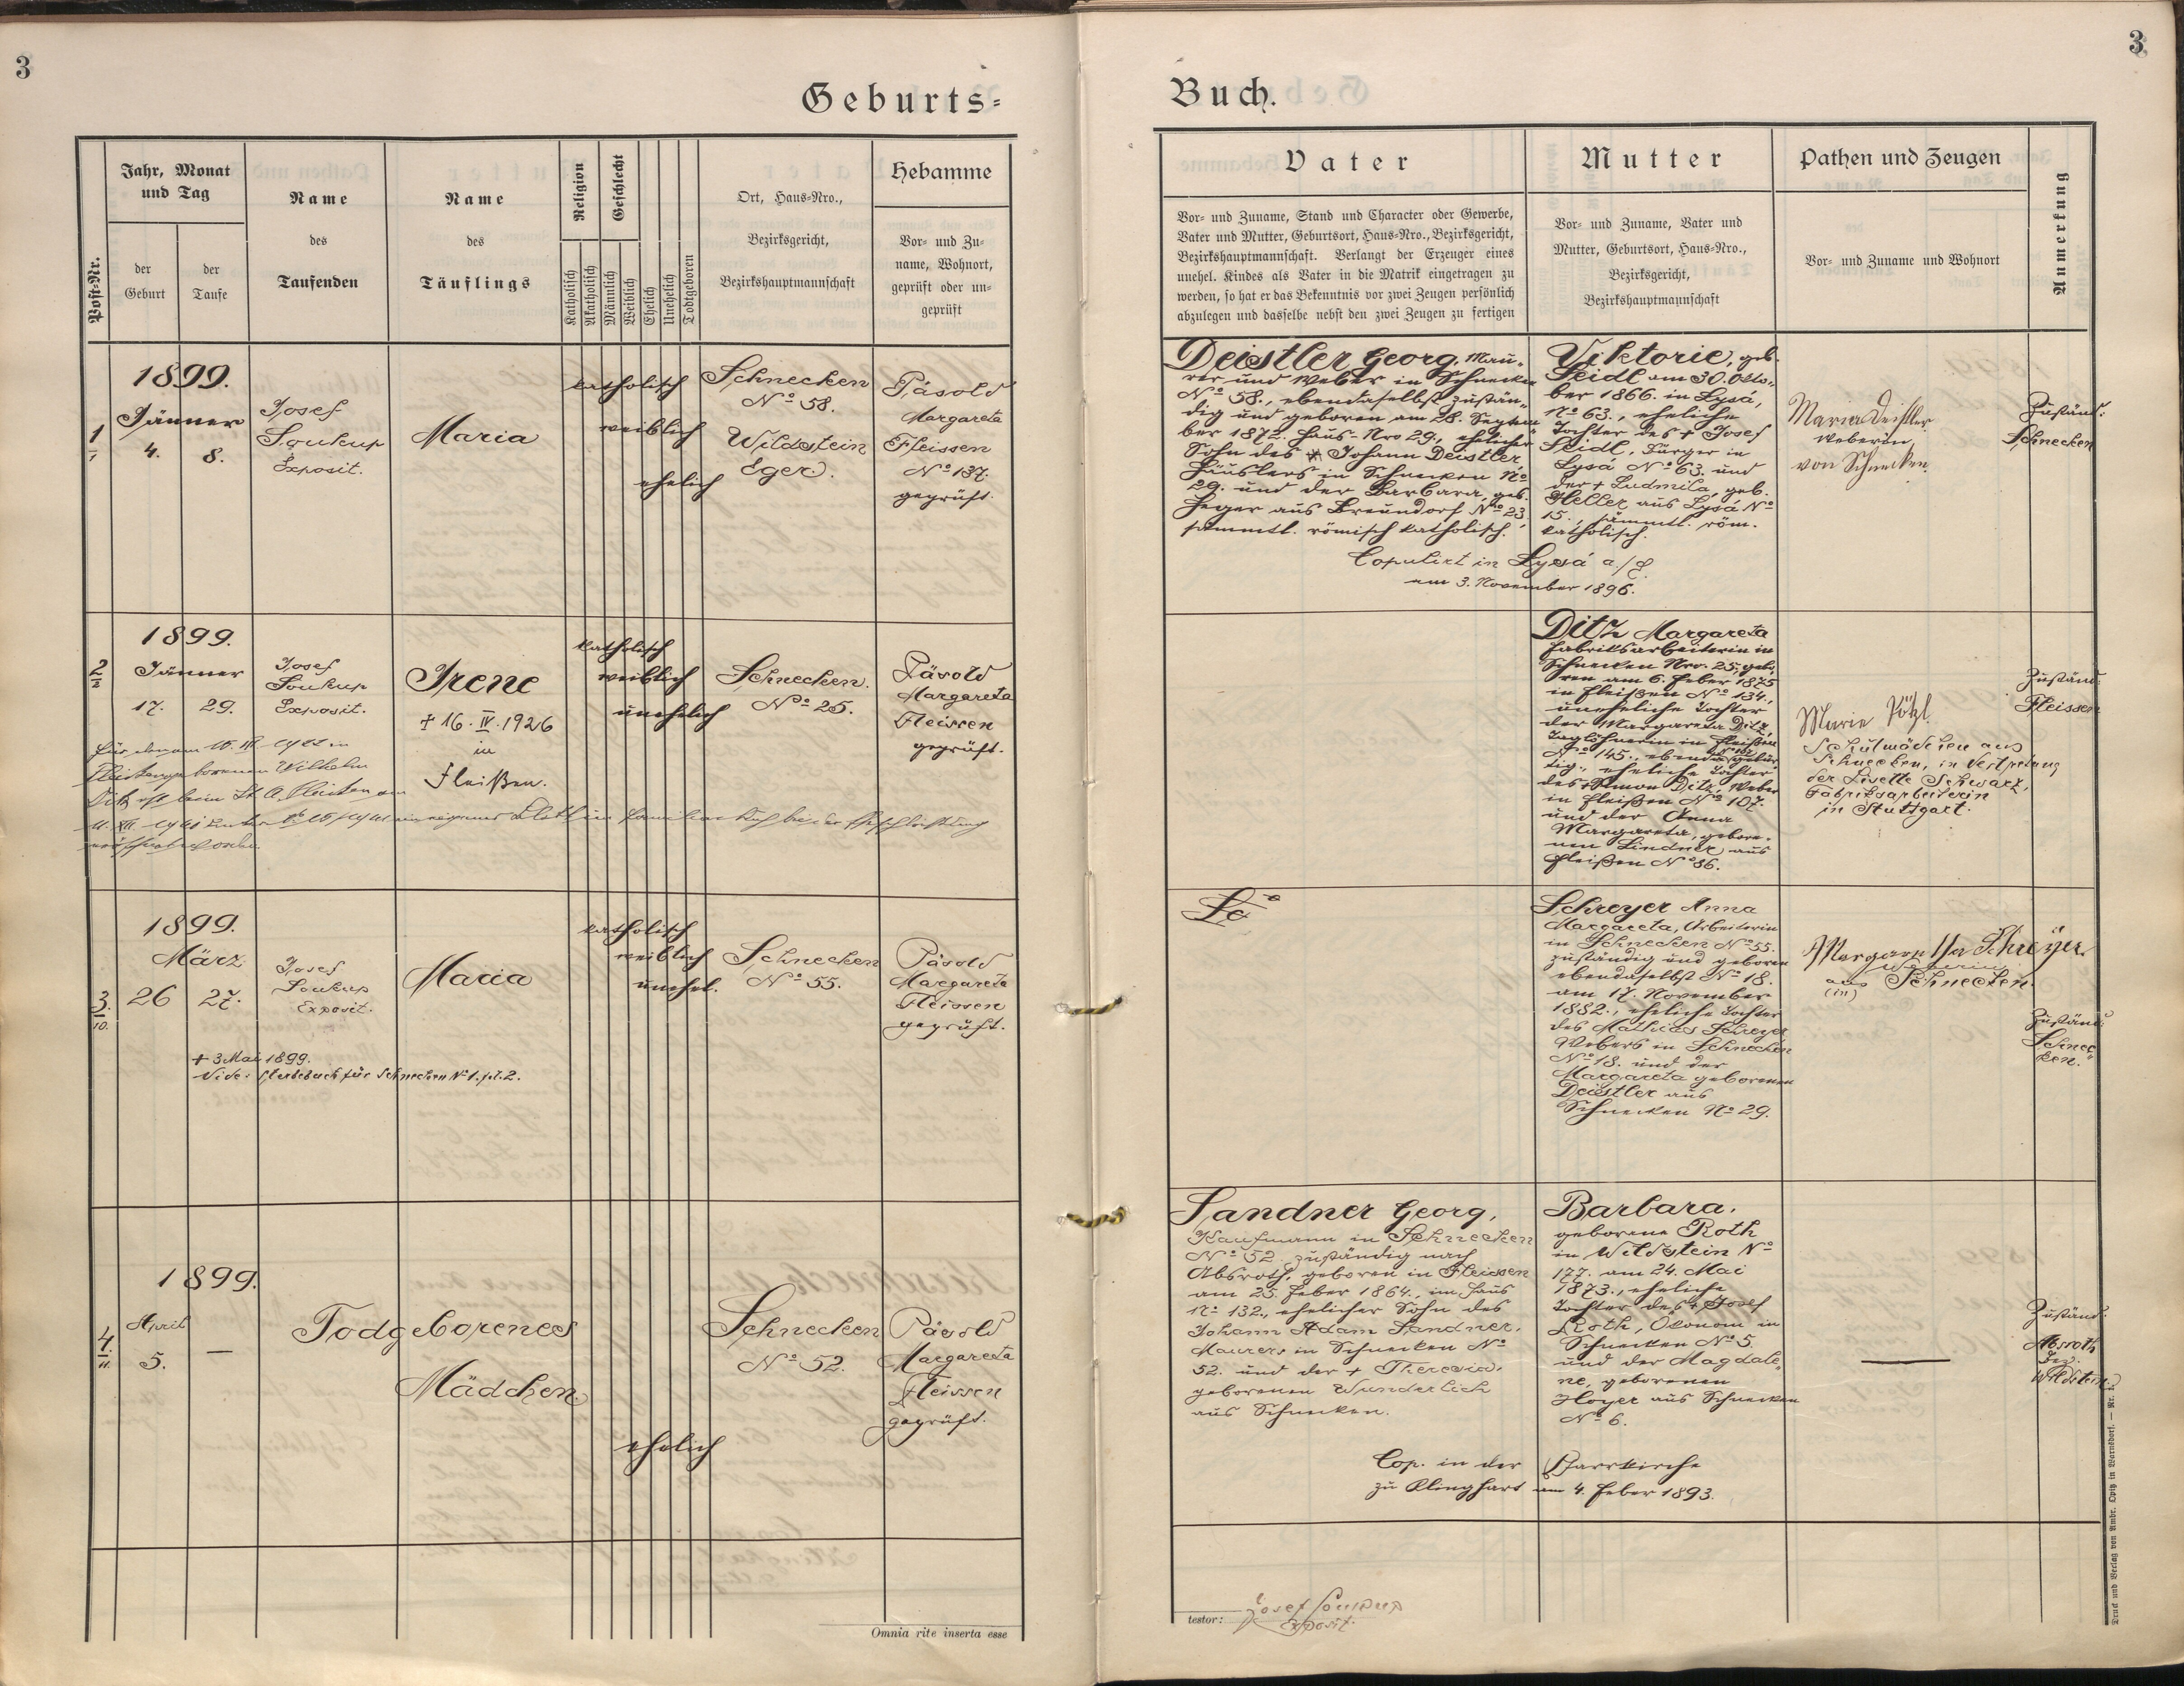 3
3
Geburts=
Buch.
Post-Nr.
Jahr, Monat
und Tag
der
Geburt
der
Taufe
Name
des
Taufenden
Name
des
Täuflings
Religion
Katholisch
Akatholisch
Geschlecht
Männlich
Weiblich
Ehelich
Unehelich
Todtgeboren
Ort, Haus=Nro.,
Bezirksgericht,
Bezirkshauptmannschaft
Hebamme
Vor= und Zu=
name, Wohnort,
geprüft oder un=
geprüft
Vater
Vor= und Zuname, Stand und Character oder Gewerbe,
Vater und Mutter, Geburtsort, Haus=Nro., Bezirksgericht,
Bezirkshauptmannschaft. Verlangt der Erzeuger eines
unehel. Kindes als Vater in die Matrik eingetragen zu
werden, so hat er das Bekenntnis vor zwei Zeugen persönlich
abzulegen und dasselbe nebst den zwei Zeugen zu fertigen
Mutter
Vor= und Zuname, Vater und
Mutter, Geburtsort, Haus=Nro.,
Bezirksgericht,
Bezirkshauptmannschaft
Pathen und Zeugen
Vor= und Zuname und Wohnort
Anmerkung
1
1
1899.
Jänner
4. 8.
Josef
Soukup
Exposit.
Maria
katholisch
weiblich
ehelich
Schnecken
Nº 58.
Wildstein
Eger.
Päsold
Margareta
Fleissen
Nº 137.
geprüft.
Deistler Georg, Mau-
rer und Weber in Schnecken
Nº 58., ebendaselbst zustän-
dig und geboren am 28. Septem
ber 1872. Haus-Nro 29., ehelicher
Sohn des Johann Deistler
Häuslers in Schnecken Nº
29. und der Barbara, geb.
Heger aus Breundorf Nº 23,
sammtl. römisch katholisch.
Viktorie, geb.
Seidl am 30. Okto-
ber 1866. in Lysá,
Nº 63., eheliche
Tochter des + Josef
Seidl, Bürger in
Lysá Nº 63. und
der + Ludmila, geb.
Heller aus Lysá Nº
15., sämmtl. röm.
katholisch.
Copulirt in Lysá a./E.
am 3. November 1896.
Maria Deistler
Weberin
von Schnecken.
Zuständ:
Schnecken
2
2
1899.
Jänner
17. 29.
Josef
Soukup
Exposit.
Irene
+ 16. IV. 1926
in
Fleißen.
katholisch
weiblich
unehelich
Schnecken.
Nº 25.
Päsold
Margareta
Fleissen
geprüft.
Ditz Margareta
Fabriksarbeiterin in
Schnecken Nro. 25, gebo-
ren am 6. Feber 1875
in Fleißen Nº 134,
uneheliche Tochter
der Margareta Ditz,
Taglöhnerin in Fleißen
Nº 145., ebenda gebür
tig., eheliche Tochter
des + Simon Ditz, Weber
in Fleißen Nº 107.
und der Anna
Margareta, gebore-
nen Lindner aus
Fleißen Nº 86.
Marie Pötzl
Schulmädchen aus
Schnecken, in Vertretung
der Lisette Schwarz,
Fabriksarbeiterin
in Stuttgart.
Zuständ:
Fleissen
3.
10.
1899.
März
26 27.
Josef
Soukup
Exposit.
Maria
+ 3 Mai 1899.
Vide: Sterbebuch für Schnecken Nº 1. fol. 2.
katholisch
weiblich
unehel.
Schnecken
Nº 55.
Päsold
Margareta
Fleissen
geprüft.
Schreyer Anna
Margareta, Arbeiterin
in Schnecken Nº 55.
zuständig und geboren
ebendaselbst Nº 18.
am 17. November
1882., eheliche Tochter
des Mathias Schreyer
Webers in Schnecken
Nº 18. und der
Margareta geborenen
Deistler aus
Schnecken Nº 29.
Schreyer
Weberin
aus Schnecken.
(in)
Zuständ:
Schnec
ken.
4.
11.
1899.
April
5. —
Todgeborenes
Mädchen.
ehelich
Schnecken
Nº 52.
Päsold
Margareta
Fleissen
geprüft.
Sandner Georg,
Kaufmann in Schnecken
Nº 52, zuständig nach
Absroth, geboren in Fleissen
am 25. Feber 1864., im Haus
Nº 132., ehelicher Sohn des
Johann Adam Sandner,
Maurers in Schnecken Nº
52. und der + Theresia,
geborenen Wunderlich
aus Schnecken.
Barbara,
geborene Roth
in Wildstein Nº
177. am 24. Mai
1873., eheliche
Tochter des + Josef
Roth, Ökonom in
Schnecken Nº 5.
und der Magdale-
ne, geborenen
Hoyer aus Schnecken
Nº 6.
Cop. in der Pfarrkirche
zu Klinghart am 4. Feber 1893.
—
Zuständ:
Absroth
Bez.
Wildstein.
Omnia rite inserta esse
testor: Josef Soukup
Exposit.
Druck und Verlag von Ambr. Opitz in Warnsdorf. — Nr. 1.